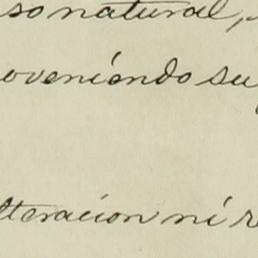 so natural,
oveniendo su
lteracion ni re